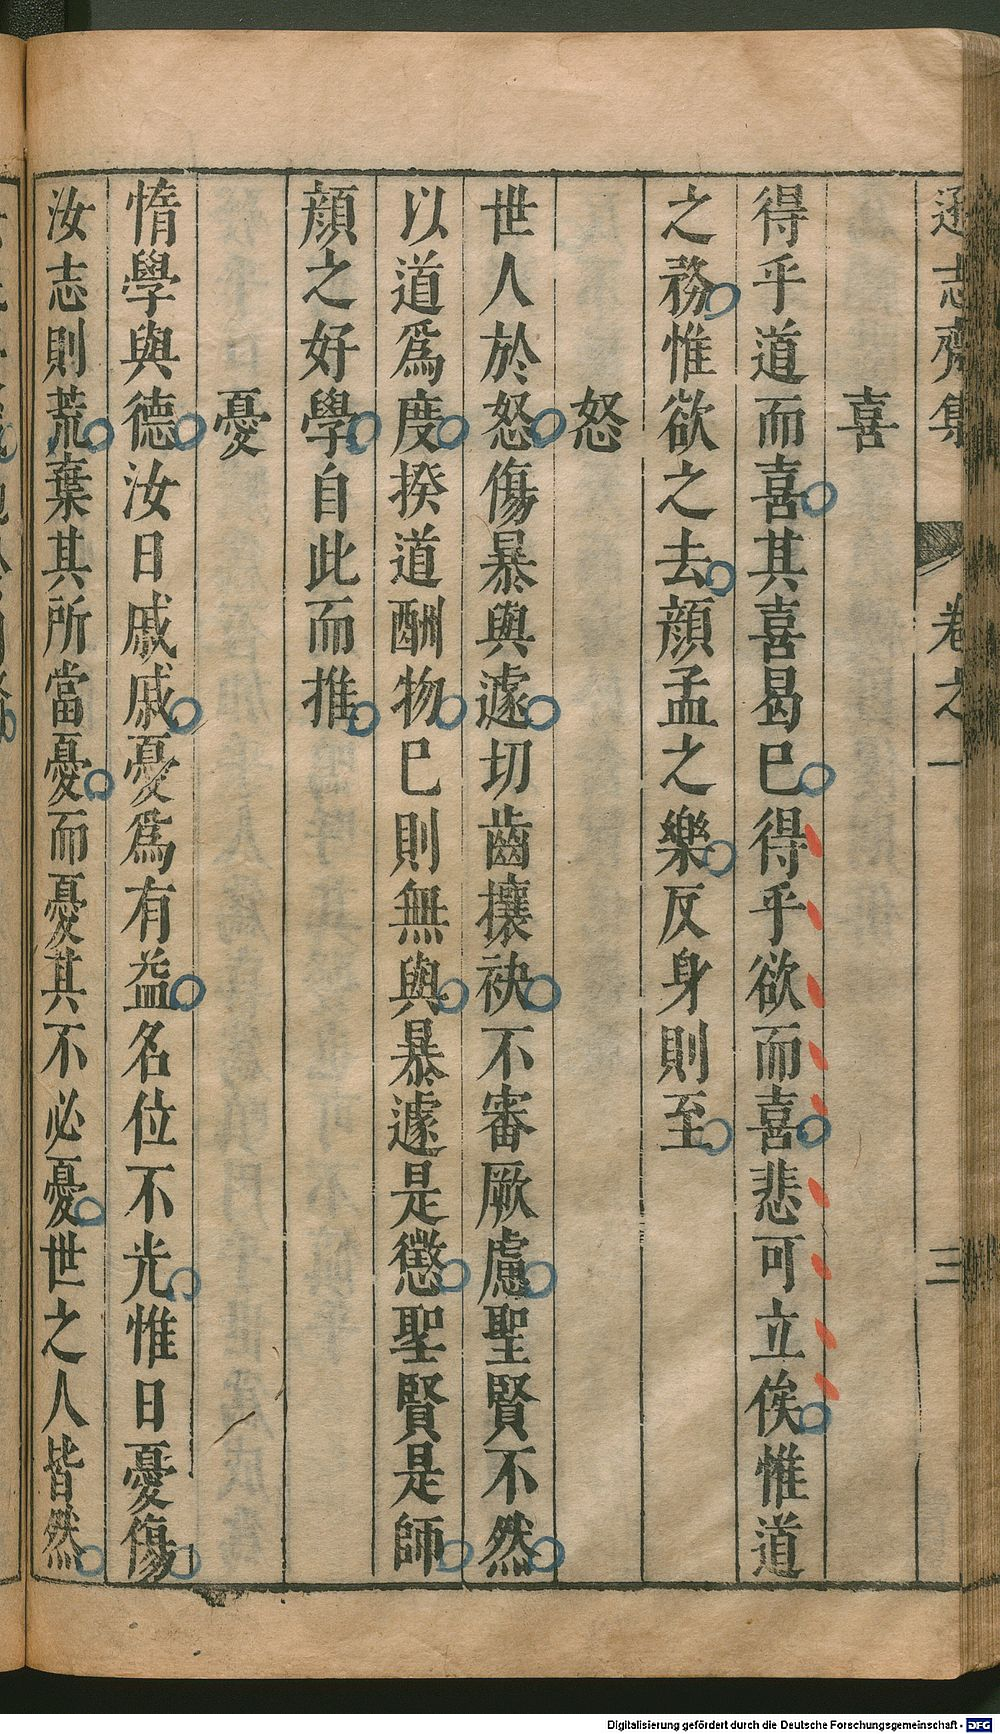 遜志齋集 卷之一 三
喜
得乎道而喜其喜曷已得乎欲而喜悲可立俟惟道
之務惟欲之去顔孟之樂反身則至
怒
世人於怒傷暴與遽切齒攘袂不審厥慮聖賢不然
以道爲度揆道酬物已則無與暴遽是懲聖賢是師
顔之好學自此而推
憂
惰學與德汝日戚戚憂爲有益名位不光惟日憂傷
汝志則荒棄其所當憂而憂其不必憂世之人皆然
Digitalisierung gefördert durch die Deutsche Forschungsgemeinschaft - DFG